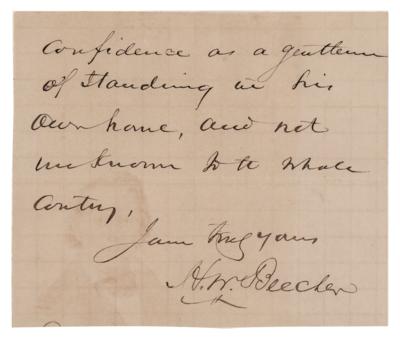 Confidence as a gentlemen
of standing in his
own home, and not
unknown to te whole
Contry,
I am truly yours
H. W. Beecher